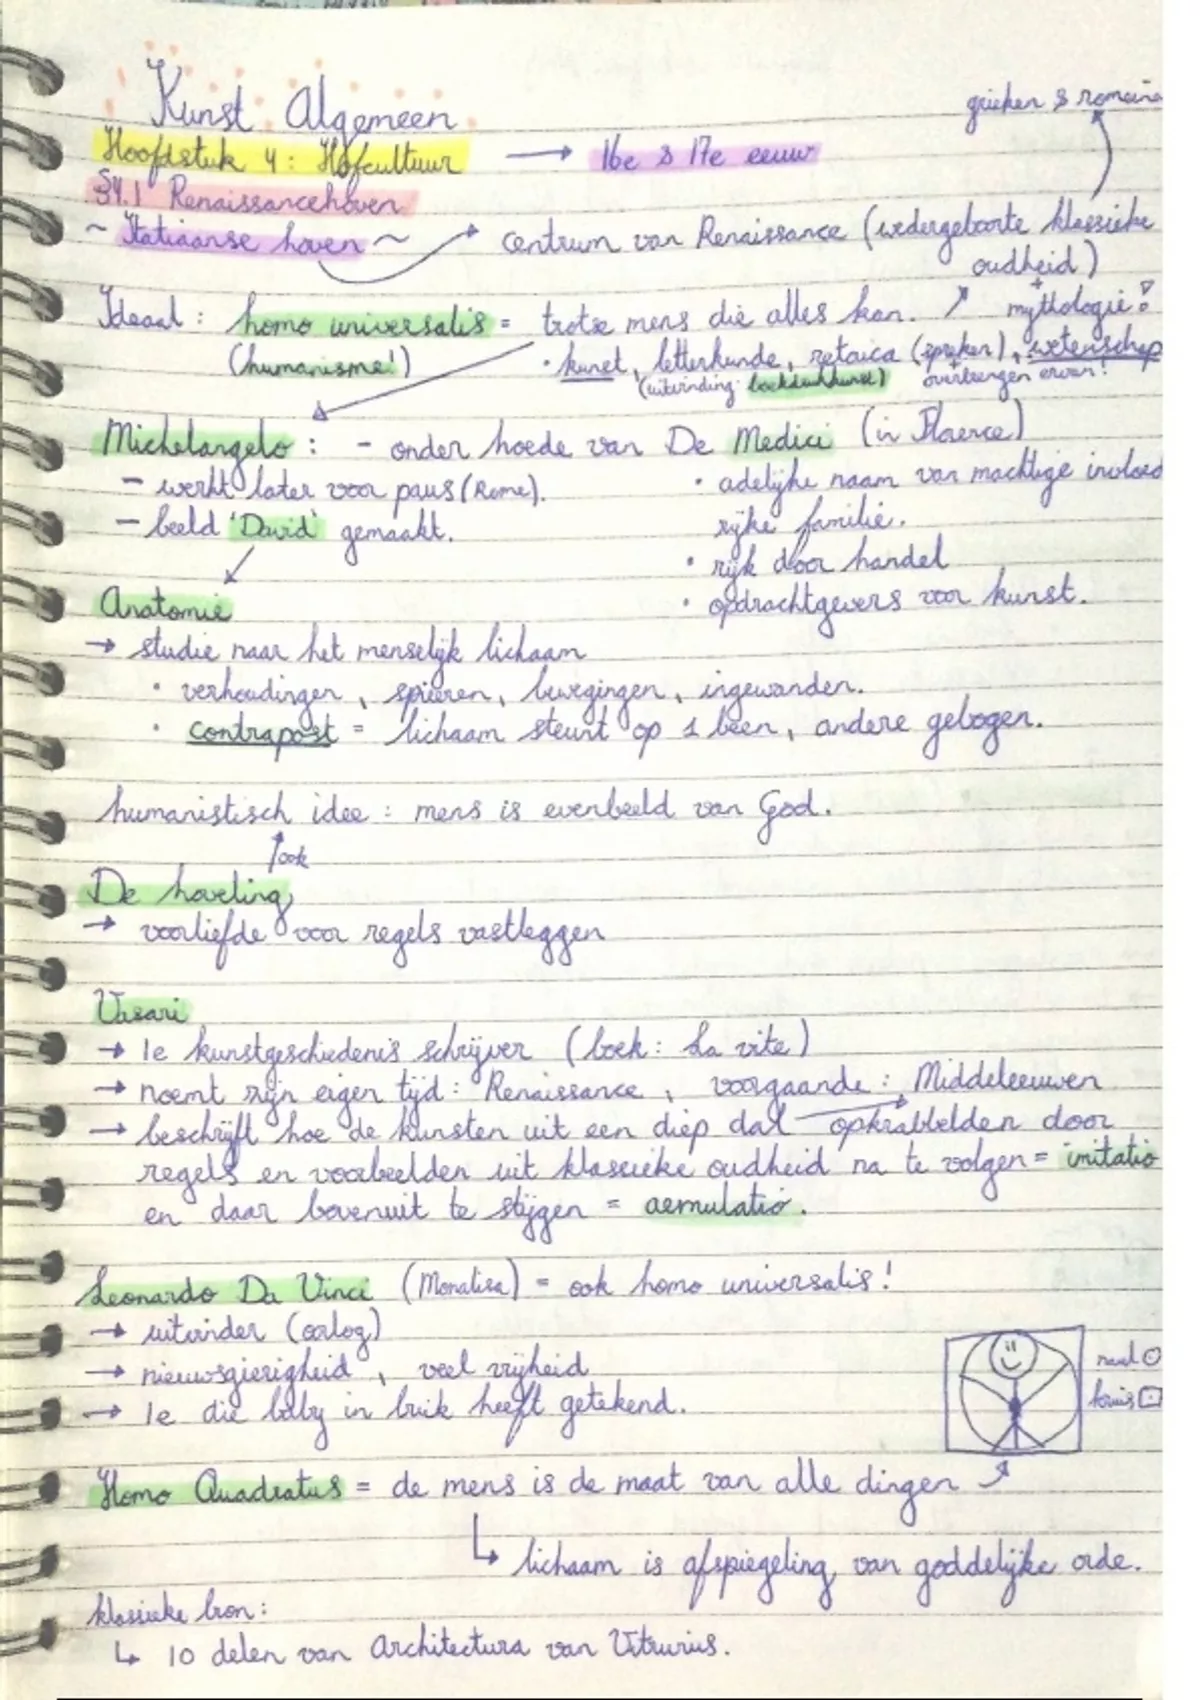 Kunst Algemeen
grieken & romeine
Hoofdstuk 4: Hofcultuur → 16e & 17e eeuw
§4.1 Renaissancehoven
~ Italiaanse hoven ~ → centrum van Renaissance (wedergeboorte klassieke
oudheid)
+
Ideaal: homo universalis = trotse mens die alles kan. mythologie!
(humanisme!) • kunst, letterkunde, retorica (spreker), wetenschap
(uitvinding: boekdrukkunst) + overbrengen ervan!
Michelangelo: - onder hoede van De Medici (in Florence)
- werkt later voor paus (Rome). • adelijke naam van machtige invloed
- beeld 'David' gemaakt. rijke familie.
• rijk door handel
Anatomie • opdrachtgevers voor kunst.
→ studie naar het menselijk lichaam
• verhoudingen, spieren, bewegingen, ingewanden.
• contrapost = lichaam steunt op 1 been, andere gebogen.
humanistisch idee: mens is evenbeeld van God.
↑ ook
De hoveling
→ voorliefde voor regels vastleggen
Vasari
→ 1e kunstgeschiedenis schrijver (boek: La vite)
→ noemt zijn eigen tijd: Renaissance, voorgaande: Middeleeuwen
→ beschrijft hoe de kunsten uit een diep dal opkrabbelden door
regels en voorbeelden uit klassieke oudheid na te volgen = imitatio
en daar bovenuit te stijgen = aemulatio.
Leonardo Da Vinci (Monalisa) = ook homo universalis!
→ uitvinder (oorlog)
→ nieuwsgierigheid, veel vrijheid
navel ○
→ 1e die baby in buik heeft getekend.
kruis □
Homo Quadratus = de mens is de maat van alle dingen
↳ lichaam is afspiegeling van goddelijke orde.
klassieke bron:
↳ 10 delen van Architectura van Vitruvius.